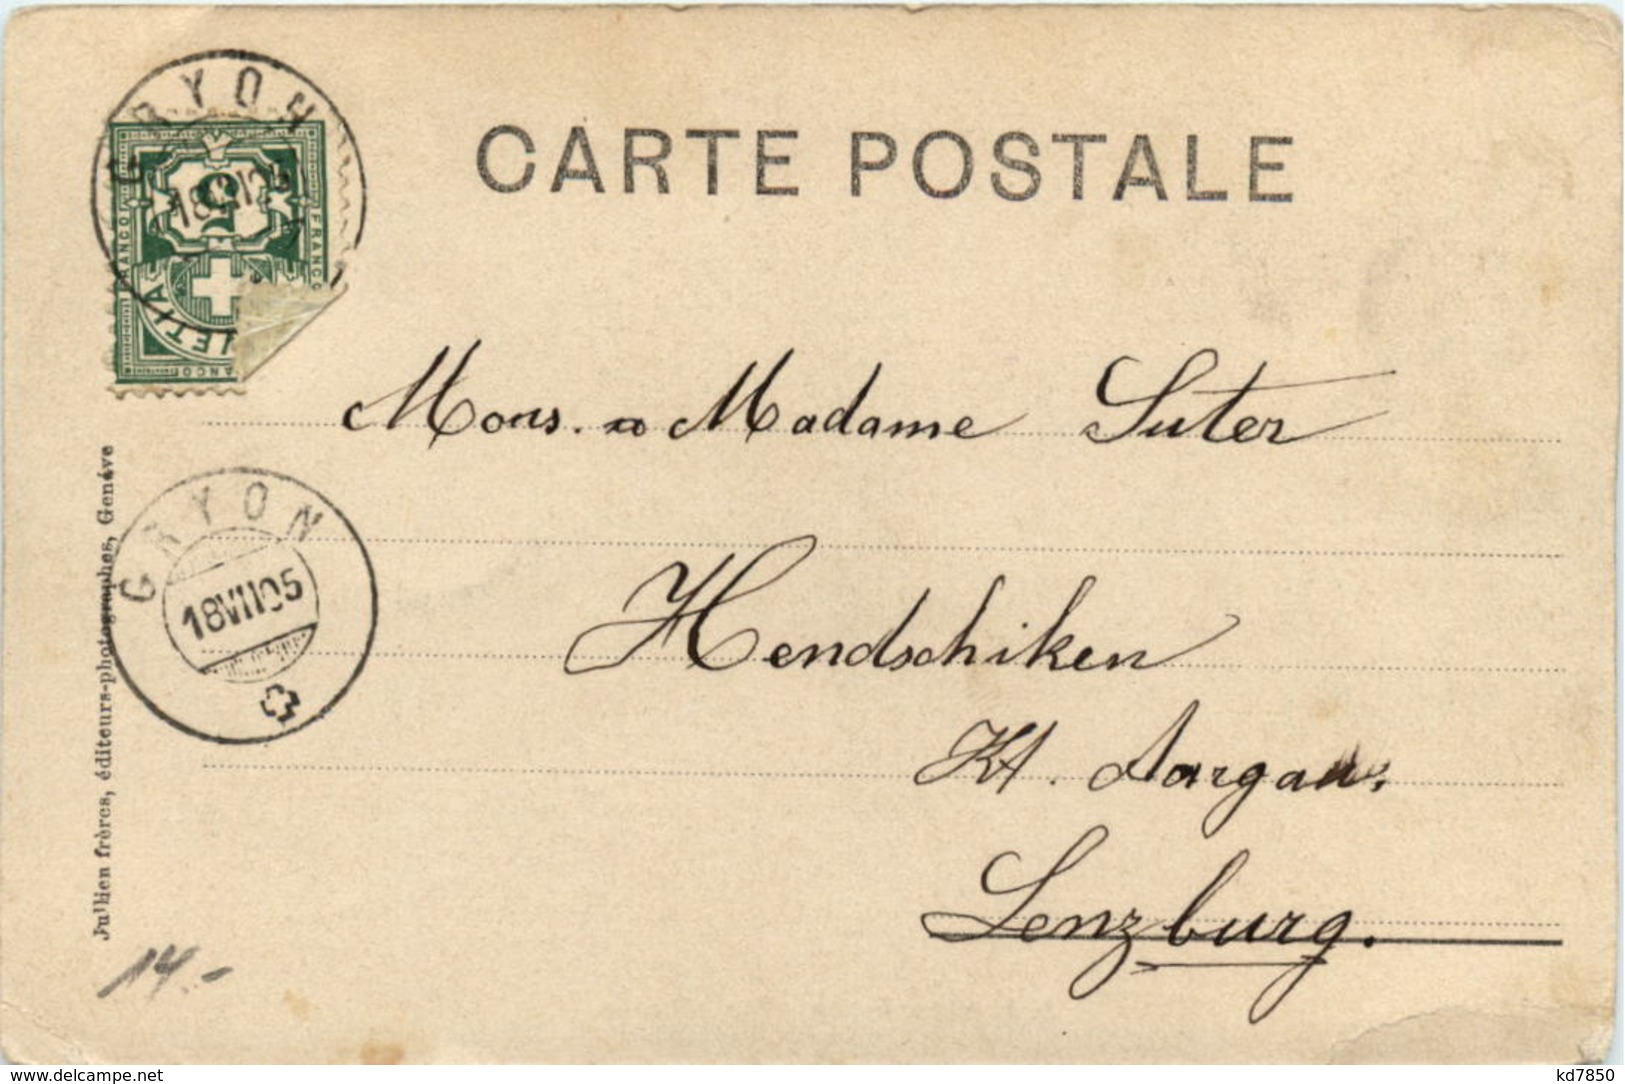 CARTE POSTALE
GRYON
18 VII 05
5
FRANCO
FRANCO
FRANCO
Mons. & Madame Suter
GRYON
18 VII 05
Hendschiken
Kt. Aargau.
Lenzburg.
Jullien frères, éditeurs-photographes, Genève
14.-
www.delcampe.net
kd7850